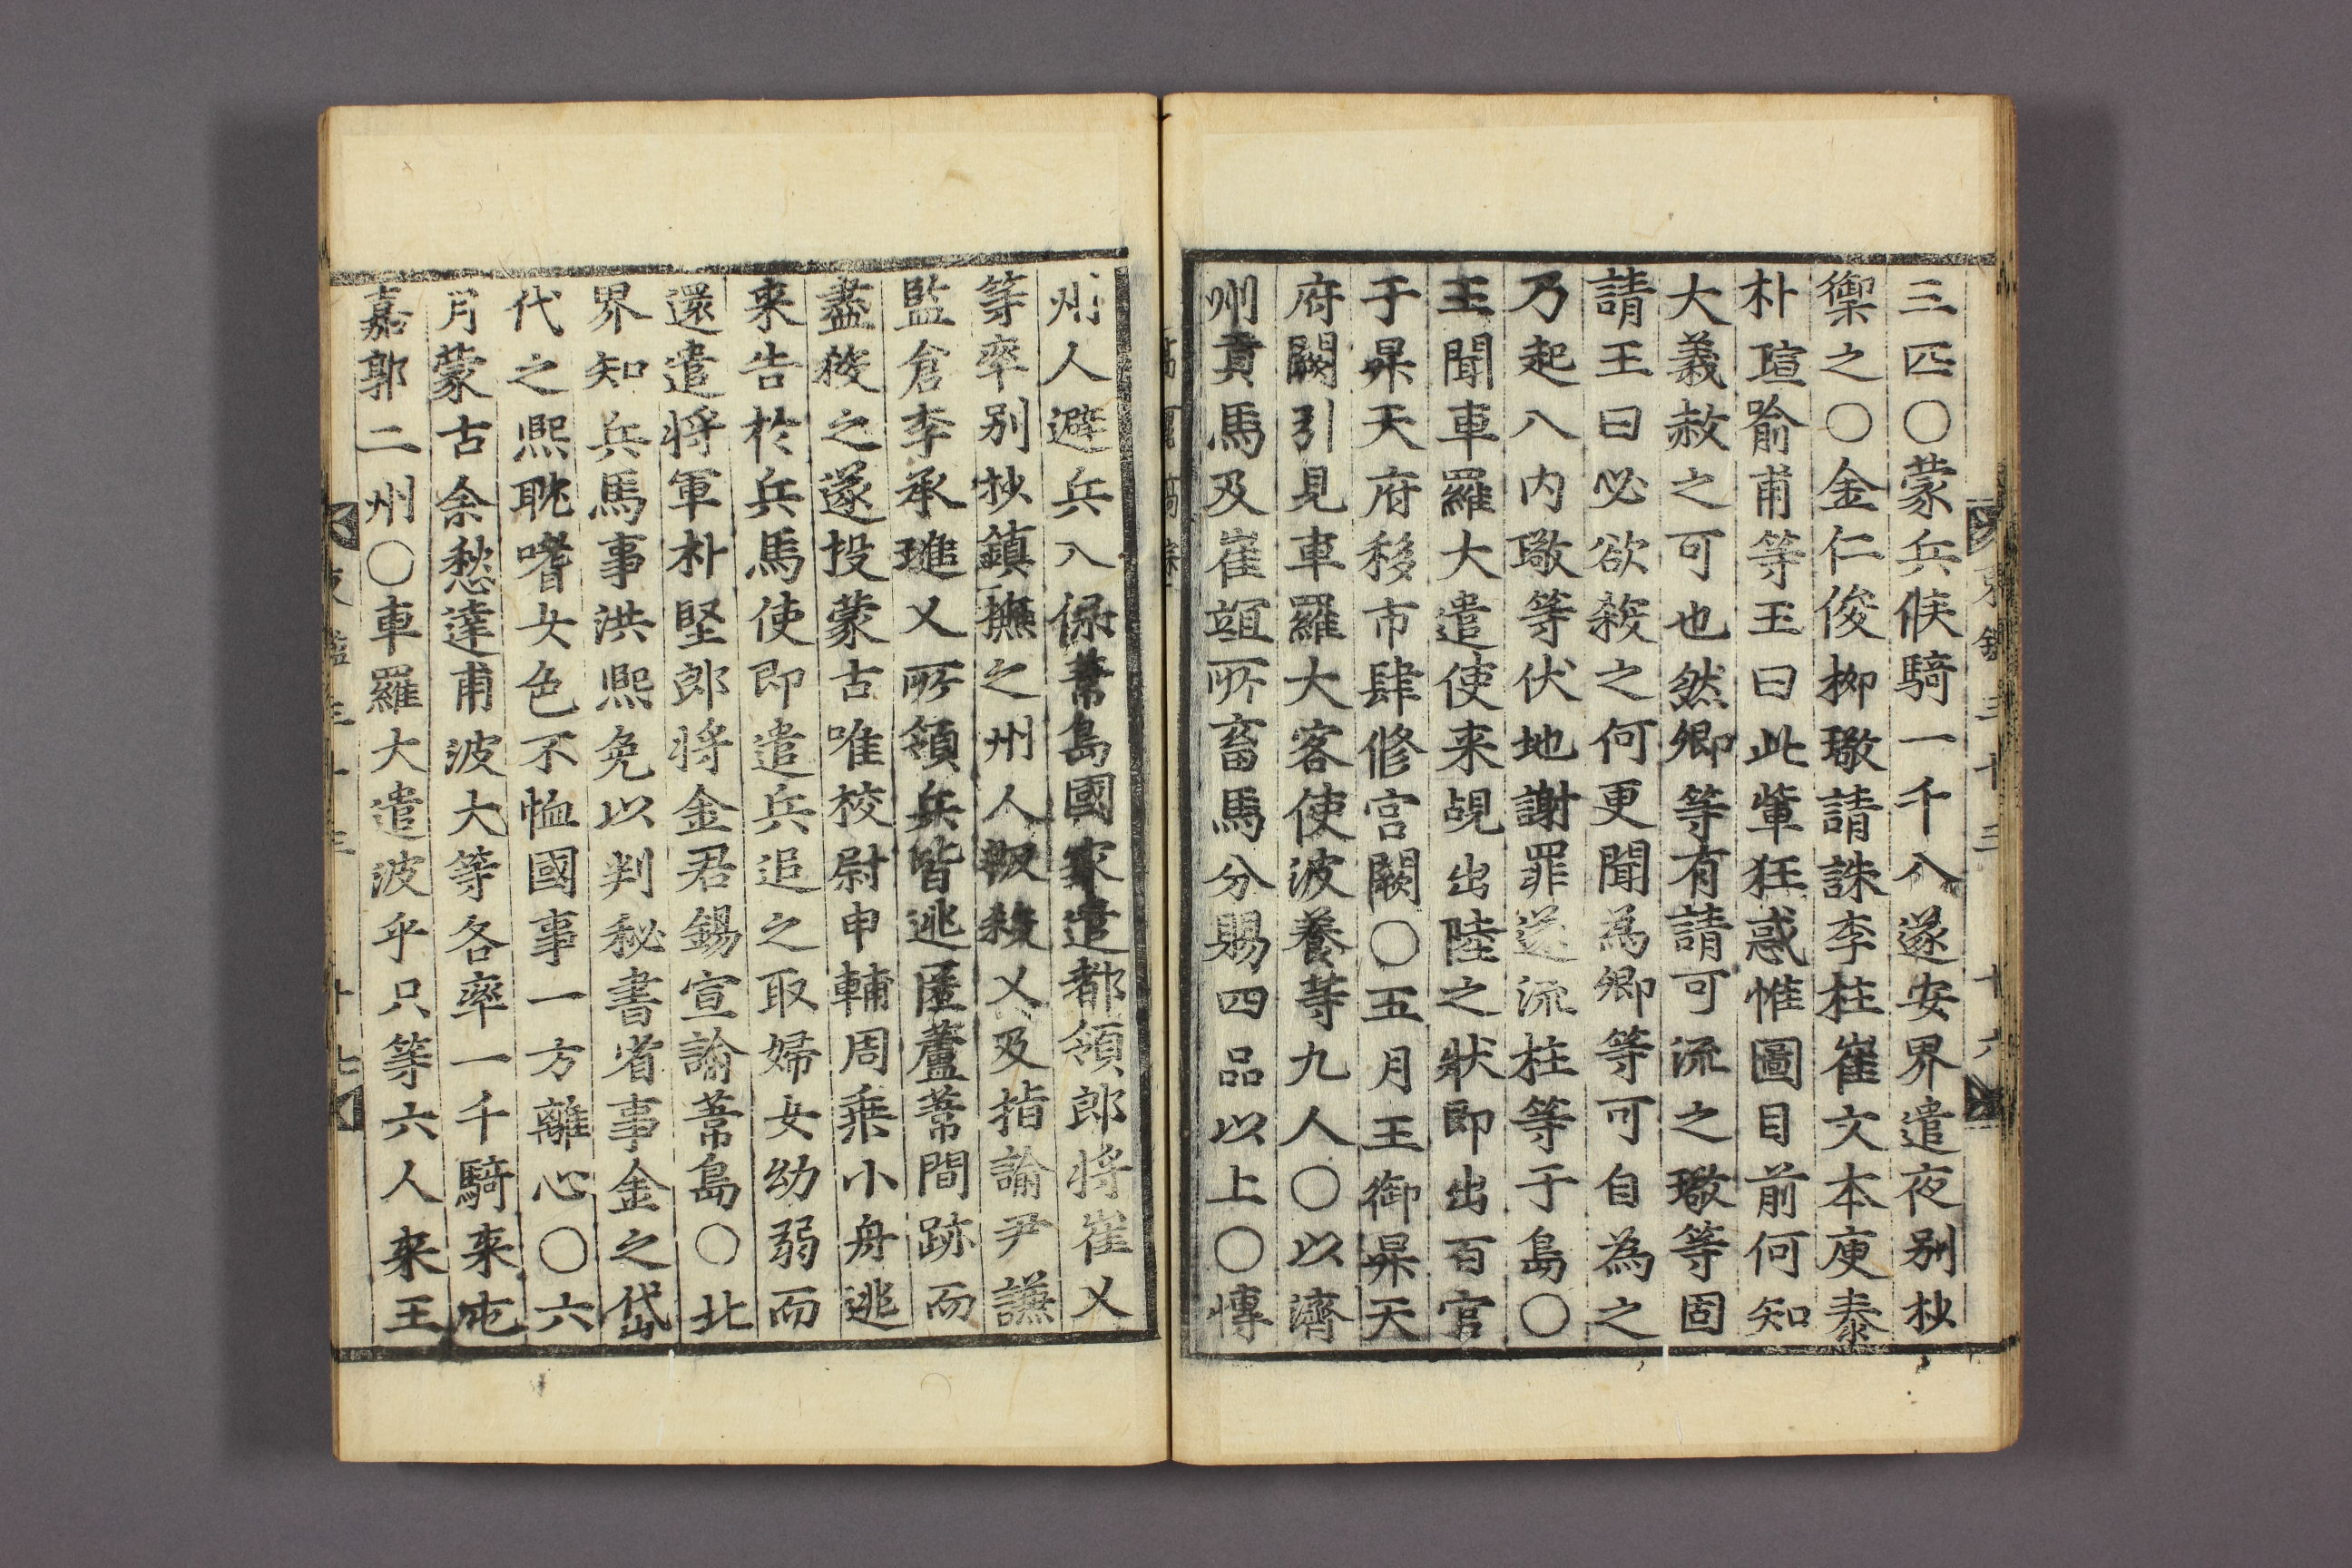 三匹○蒙兵候騎一千入遂安界遣夜别抄
禦之○金仁俊柳璥請誅李柱崔文本庾泰
朴瑄喩甫等王曰此軰狂惑惟圖目前何知
大義赦之可也然卿等有請可流之璥等固
請王曰必欲殺之何更聞為卿等可自為之
乃起入内璥等伏地謝罪遂流柱等于島○
王聞車羅大遣使来覘出陸之狀即出百官
于昇天府移市肆修宫闕○五月王御昇天
府闕引見車羅大客使波養等九人○以濟
州貢馬及崔竩所畜馬分賜四品以上○博
州人避兵入保葦島國家遣都領郎将崔乂
等率别抄鎮撫之州人叛殺乂及指諭尹謙
監倉李承璡乂所領兵皆逃匿蘆葦間跡而
盡殺之遂投蒙古唯校尉申輔周乗小舟逃
来告於兵馬使即遣兵追之取婦女幼弱而
還遣将軍朴堅郎将金君錫宣諭葦島○北
界知兵馬事洪熙免以判秘書省事金之岱
代之熙耽嗜女色不恤國事一方離心○六
月蒙古余愁達甫波大等各率一千騎来屯
嘉郭二州○車羅大遣波乎只等六人来王